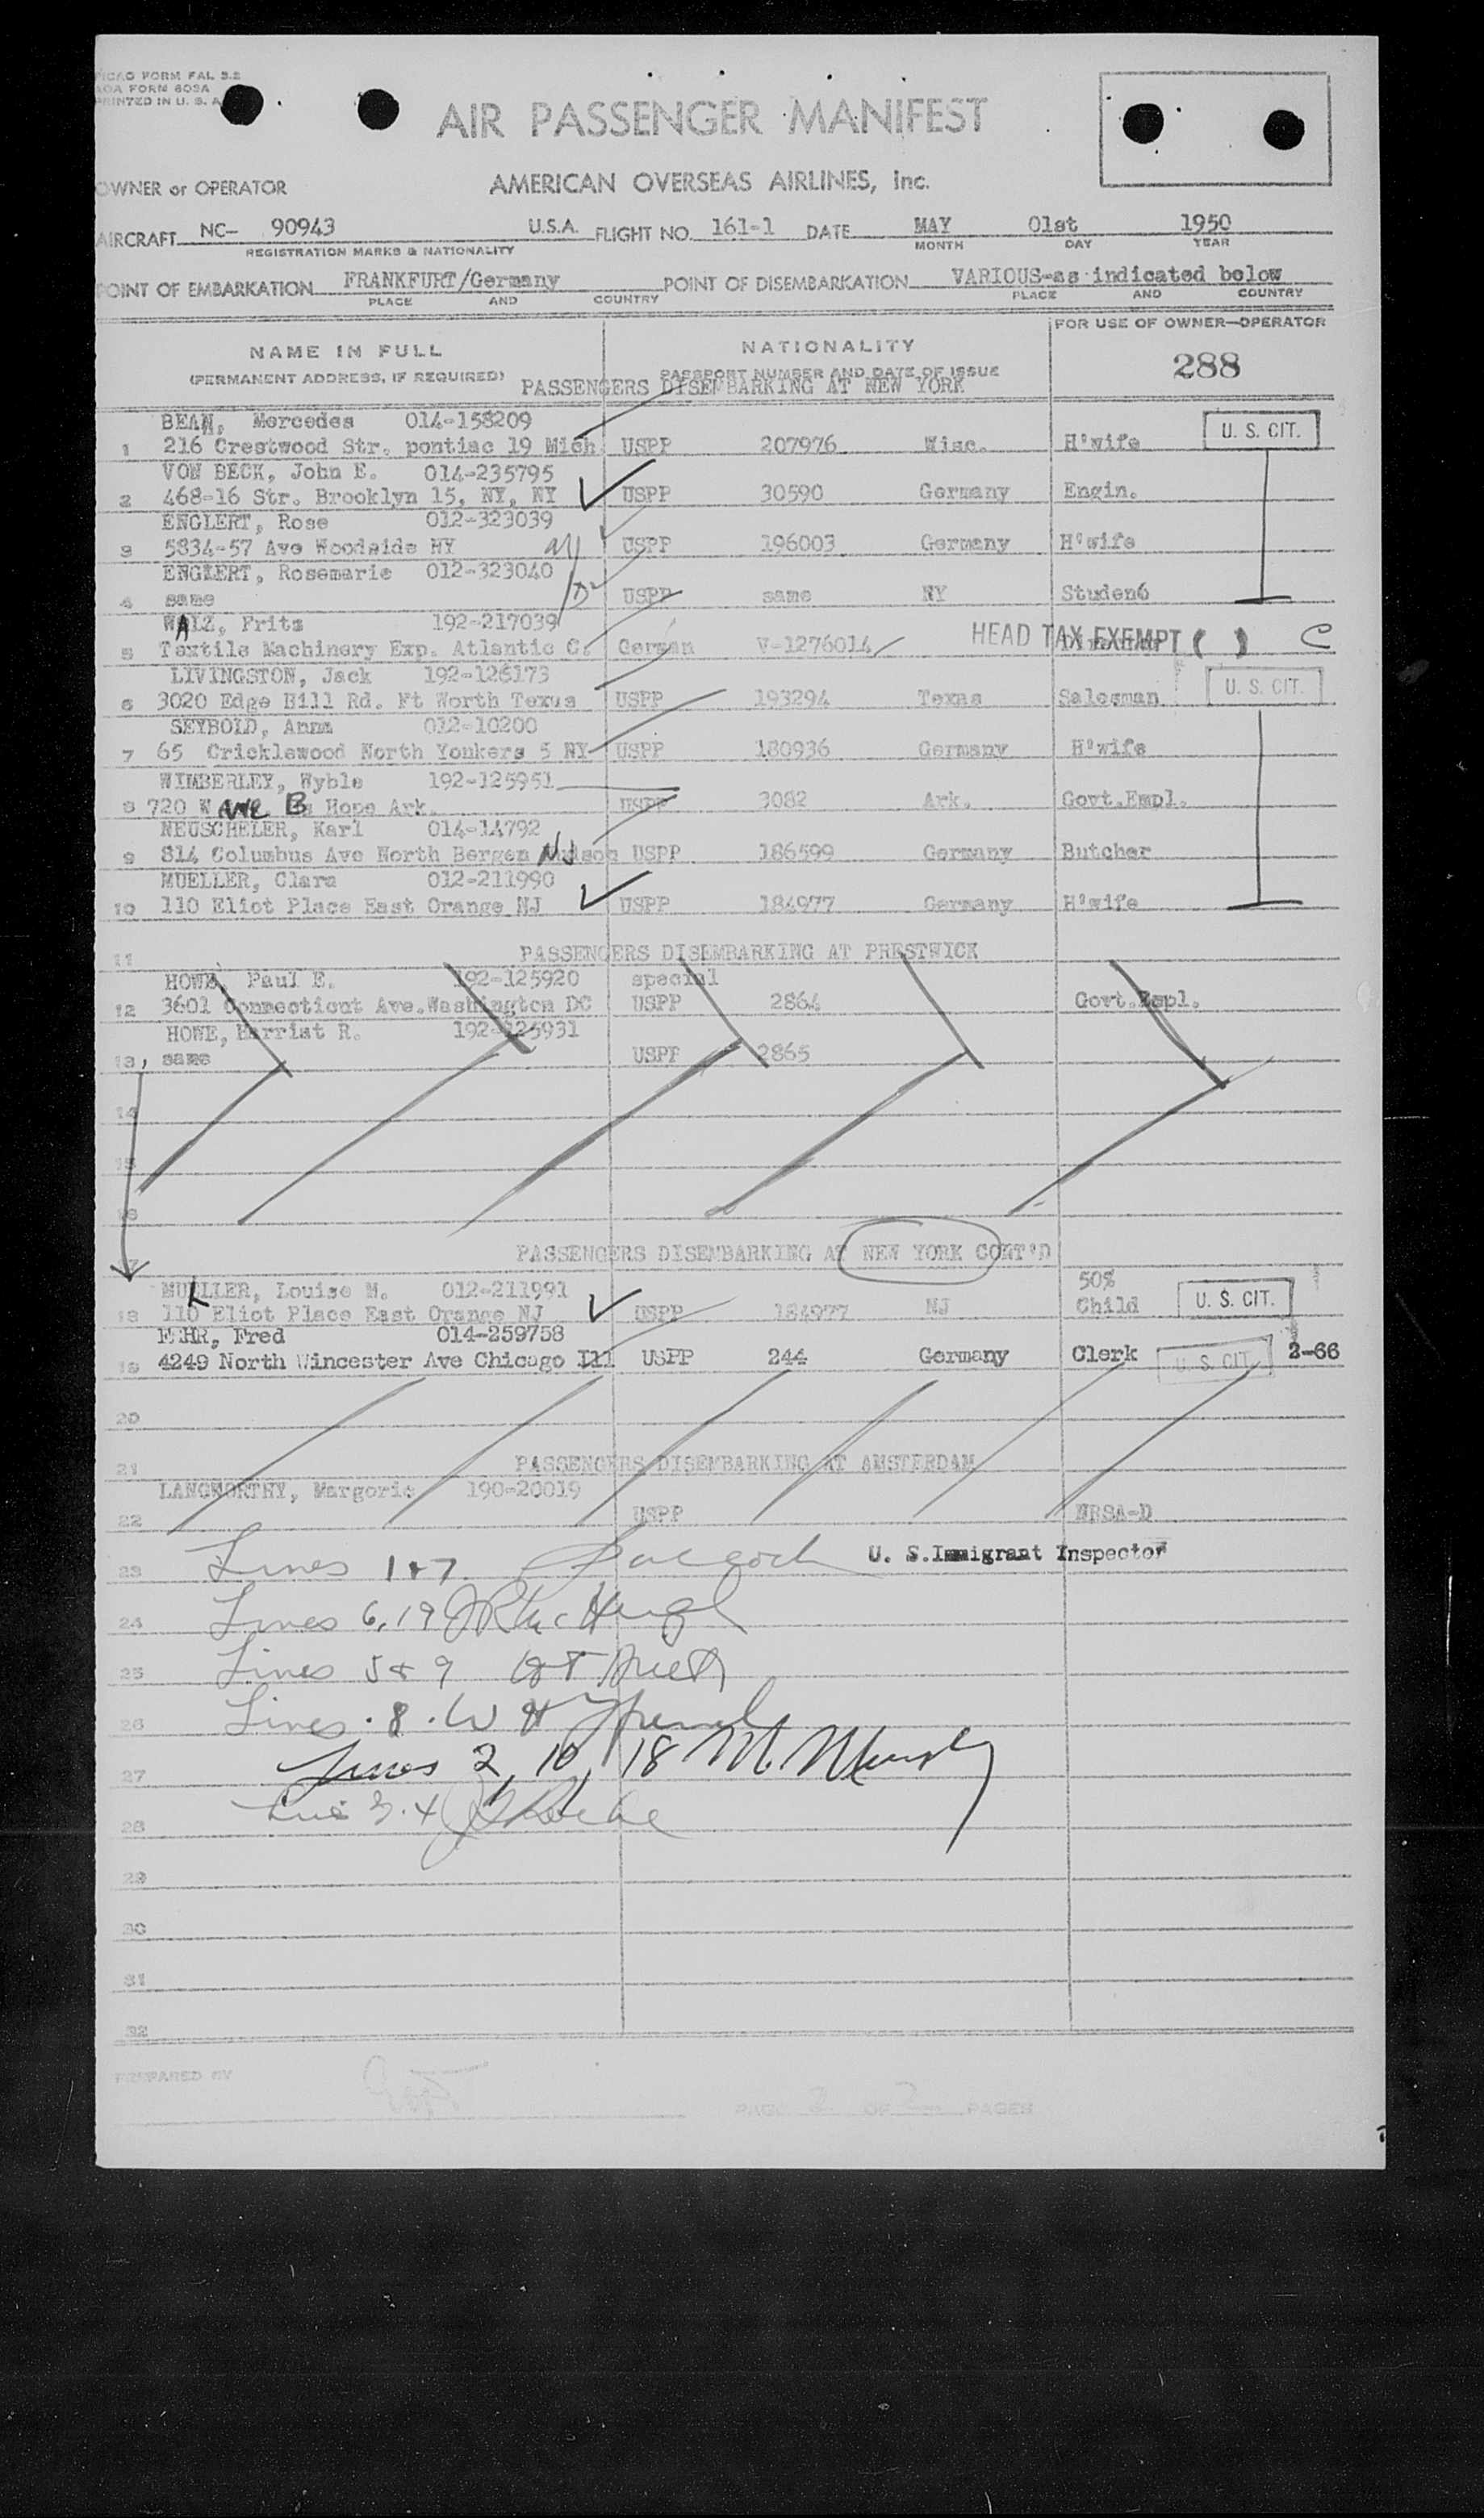 ICAO FORM FAL 3.2
AOA FORM 603A
PRINTED IN U. S. A.
AIR PASSENGER MANIFEST
OWNER or OPERATOR AMERICAN OVERSEAS AIRLINES, Inc.
AIRCRAFT NC- 90943 U.S.A. FLIGHT NO. 161-1 DATE MAY 01st 1950
REGISTRATION MARKS & NATIONALITY MONTH DAY YEAR
POINT OF EMBARKATION FRANKFURT/Germany POINT OF DISEMBARKATION VARIOUS-as indicated below
PLACE AND COUNTRY PLACE AND COUNTRY
FOR USE OF OWNER—OPERATOR
NAME IN FULL NATIONALITY
(PERMANENT ADDRESS, IF REQUIRED) PASSPORT NUMBER AND DATE OF ISSUE 288
PASSENGERS DISEMBARKING AT NEW YORK
BEAN, Mercedes 014-158209
1 216 Crestwood Str. pontiac 19 Mich USPP 207976 Wisc. H'wife U. S. CIT.
VON BECK, John E. 014-235795
2 468-16 Str. Brooklyn 15, NY, NY USPP 30590 Germany Engin.
ENGLERT, Rose 012-323039
3 5834-57 Ave Woodside NY USPP 196003 Germany H'wife
ENGLERT, Rosemarie 012-323040
4 same USPP same NY Studen6
WALZ, Fritz 192-217039
5 Textile Machinery Exp. Atlantic C. German V-1276014 HEAD TAX EXEMPT ( ) C
LIVINGSTON, Jack 192-126173
6 3020 Edge Hill Rd. Ft Worth Texus USPP 193294 Texas Salesman U. S. CIT.
SEYBOLD, Anna 012-10200
7 65 Cricklewood North Yonkers 5 NY USPP 180936 Germany H'wife
WIMBERLEY, Wyble 192-125951
8 720 W Ave B Hope Ark. USPP 3082 Ark. Govt.Empl.
NEUSCHELER, Karl 014-14792
9 814 Columbus Ave North Bergen NJ USPP 186599 Germany Butcher
MUELLER, Clara 012-211990
10 110 Eliot Place East Orange NJ USPP 184977 Germany H'wife
11 PASSENGERS DISEMBARKING AT PRESTWICK
HOWE, Paul E. 192-125920 special
12 3601 Connecticut Ave.Washington DC USPP 2864 Govt.Empl.
HOWE, Harriat R. 192-125931
13 same USPP 2865
14
15
16
17 PASSENGERS DISEMBARKING AT NEW YORK CONT'D
MUELLER, Louise M. 012-211991 50%
18 110 Eliot Place East Orange NJ USPP 184977 NJ Child U. S. CIT.
FEHR, Fred 014-259758
19 4249 North Wincester Ave Chicago Ill USPP 244 Germany Clerk U. S. CIT. 2-66
20
21 PASSENGERS DISEMBARKING AT AMSTERDAM
LANGWORTHY, Margorie 190-20019
22 USPP NRSA-D
23 Lines 1 & 7 U. S.Immigrant Inspector
24 Lines 6, 19
25 Lines 5 & 9
26 Lines 8
27 Lines 2, 10, 18 M. Murphy
28 Line 3. 4
29
30
31
32
PREPARED BY
PAGE 2 OF 2 PAGES